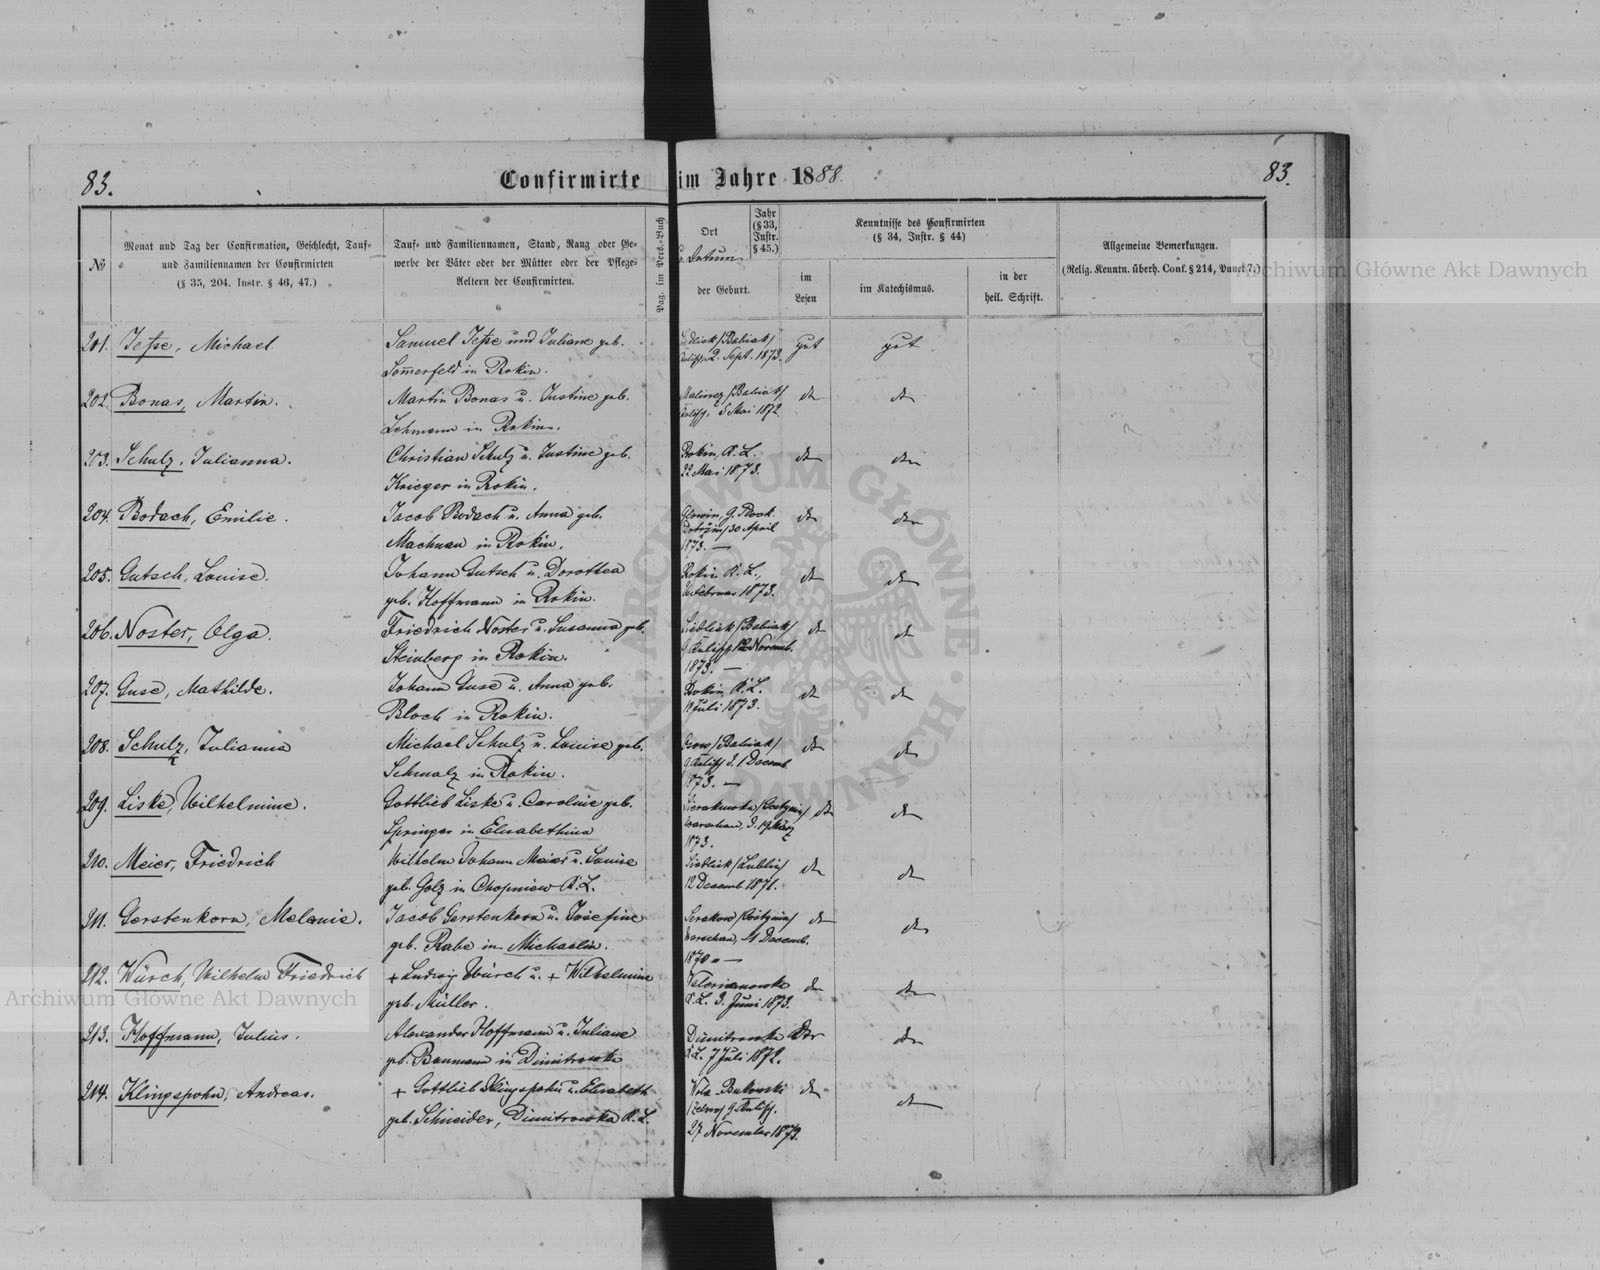 83.
Confirmirte im Jahre 1888.
83.
№
Monat und Tag der Confirmation, Geschlecht, Tauf-
und Familiennamen der Confirmirten
(§ 35, 204. Instr. § 46, 47.)
Tauf- und Familiennamen, Stand, Rang oder Ge-
werbe der Väter oder der Mütter oder der Pflege-
Aeltern der Confirmirten.
Pag. im Pers.-Buch
Ort
u. Datum
der Geburt.
Jahr
(§ 33,
Instr.
§ 45.)
Kenntnisse des Confirmirten
(§ 34, Instr. § 44)
im
Lesen
im Katechismus.
in der
heil. Schrift.
Allgemeine Bemerkungen.
(Relig. Kenntn. überh. Conf. § 214, Punct 7.)
201. Jeße, Michael
Samuel Jeße und Juliane geb.
Som̄erfeld in Rokin.
Siedlisk /Babiak/
Kalisch, 2. Sept. 1873.
gut
gut.
202. Bonas, Martin.
Martin Bonas u. Justine geb.
Lehmann in Rokin.
/Babiak/
Kalisch, 5 Mai 1872
do
do
203. Schulz, Julianna.
Christian Schulz u. Justine geb.
Krieger in Rokin.
Rokin, K. L.
22 Mai 1873.
do
do
204. Bodach, Emilie.
Jacob Bodach u. Anna geb.
Machnau in Rokin.
Glowin, G. Plock
30 April
1873. —
do
do
205. Gutsch, Louise.
Johann Gutsch u. Dorothea
geb. Hoffmann in Rokin.
Rokin K. L.,
Februar 1873.
do
do
206. Noster, Olga.
Friedrich Noster u. Susanna geb.
Steinberg in Rokin.
Siedlisk /Babiak/
G. Kalisch 12 Novemb.
1873. —
do
do
207. Guse, Mathilde.
Johann Guse u. Anna geb.
Bloch in Rokin.
Rokin, K. L.
Juli 1873.
do
do
208. Schulz, Julianna
Michael Schulz u. Louise geb.
Schmalz in Rokin.
/Babiak/
G. Kalisch d. 1 Decemb
1873. —
do
do
209. Liske, Wilhelmine.
Gottlieb Liske u. Caroline geb.
Springer in Elisabethina
/Gostynin/
Warschau, d. 19 März
1873.
do
do
210. Meier, Friedrich
Wilhelm Johann Meier u. Louise
geb. Golz in Chopniow K. L.
Siedlisk /Lublin/
12 Decemb 1871.
do
do
211. Gerstenkorn, Melanie.
Jacob Gerstenkorn u. Josefine
geb. Rabe in Michaelin.
Serakow /Gostynin/
Warschau, 21 Decemb.
1870. —
do
do
212. Würch, Wilhelm Friedrich
+ Ludwig Würch u. + Wilhelmine
geb. Müller.
Valerianowka
K. L. 3. Juni 1873.
do
do
213. Hoffmann, Julius.
Alexander Hoffmann u. Juliane
geb. Baumann in Dimitrowka
Dimitrowka
K. L. 7 Juli 1872.
do
do
214. Klingspohn, Andreas.
+ Gottlieb Klingspohn u. Elisabeth
geb. Schneider, Dimitrowka K. L.
Wola Bukowski
G. Kalisch.
27 November 1873.
do
do
Archiwum Główne Akt Dawnych
Archiwum Główne Akt Dawnych
ARCHIWUM GŁÓWNE AKT DAWNYCH